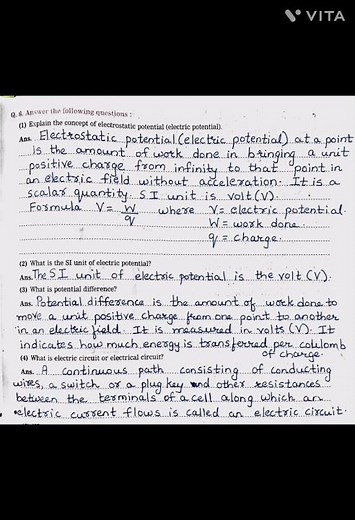 VITA
Q. 6. Answer the following questions :
(1) Explain the concept of electrostatic potential (electric potential).
Ans. Electrostatic potential (electric potential) at a point
is the amount of work done in bringing a unit
positive charge from infinity to that point in
an electric field without acceleration. It is a
scalar quantity. S I unit is volt (V).
Formula V = W/q where V = electric potential.
W = work done.
q = charge.
(2) What is the SI unit of electric potential?
Ans. The S I unit of electric potential is the volt (V).
(3) What is potential difference?
Ans. Potential difference is the amount of work done to
move a unit positive charge from one point to another
in an electric field. It is measured in volts (V). It
indicates how much energy is transferred per coulomb
of charge.
(4) What is electric circuit or electrical circuit?
Ans. A continuous path consisting of conducting
wires, a switch or a plug key and other resistances
between the terminals of a cell along which an
electric current flows is called an electric circuit.